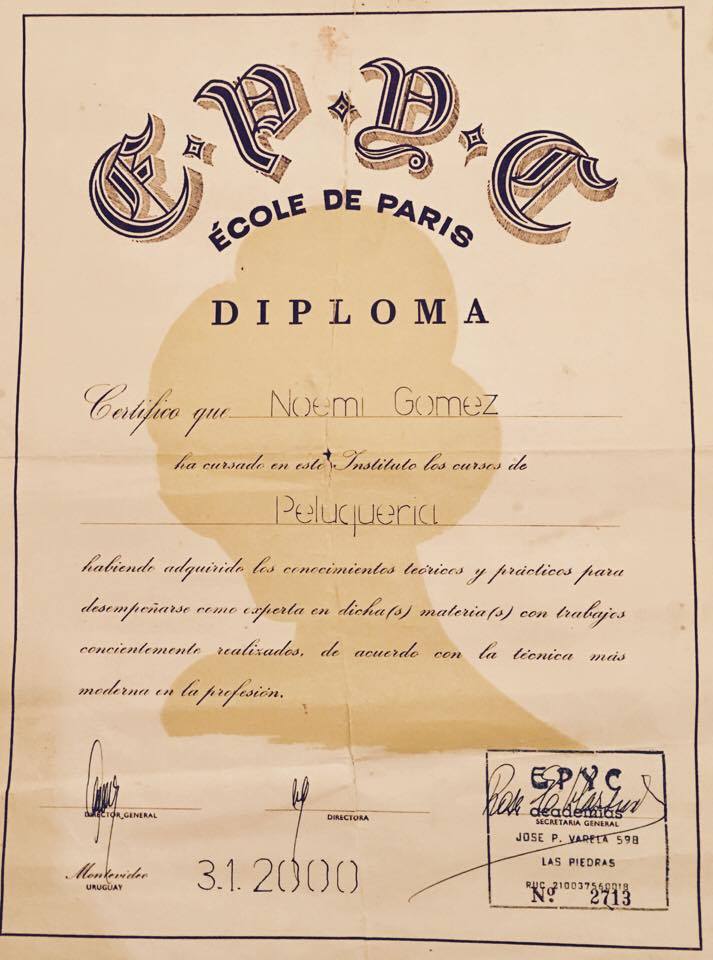 E·P·Y·C
ÉCOLE DE PARIS
DIPLOMA
Certifico que Noemi Gomez
ha cursado en este Instituto los cursos de
Peluqueria
habiendo adquirido los conocimientos teóricos y prácticos para
desempeñarse como experta en dicha(s) materia(s) con trabajos
concientemente realizados, de acuerdo con la técnica más
moderna en la profesión.
DIRECTOR GENERAL
DIRECTORA
Montevideo
URUGUAY
3.1.2000
EPYC
academias
SECRETARIA GENERAL
JOSE P. VARELA 598
LAS PIEDRAS
RUC 210037560018
Nº 2713